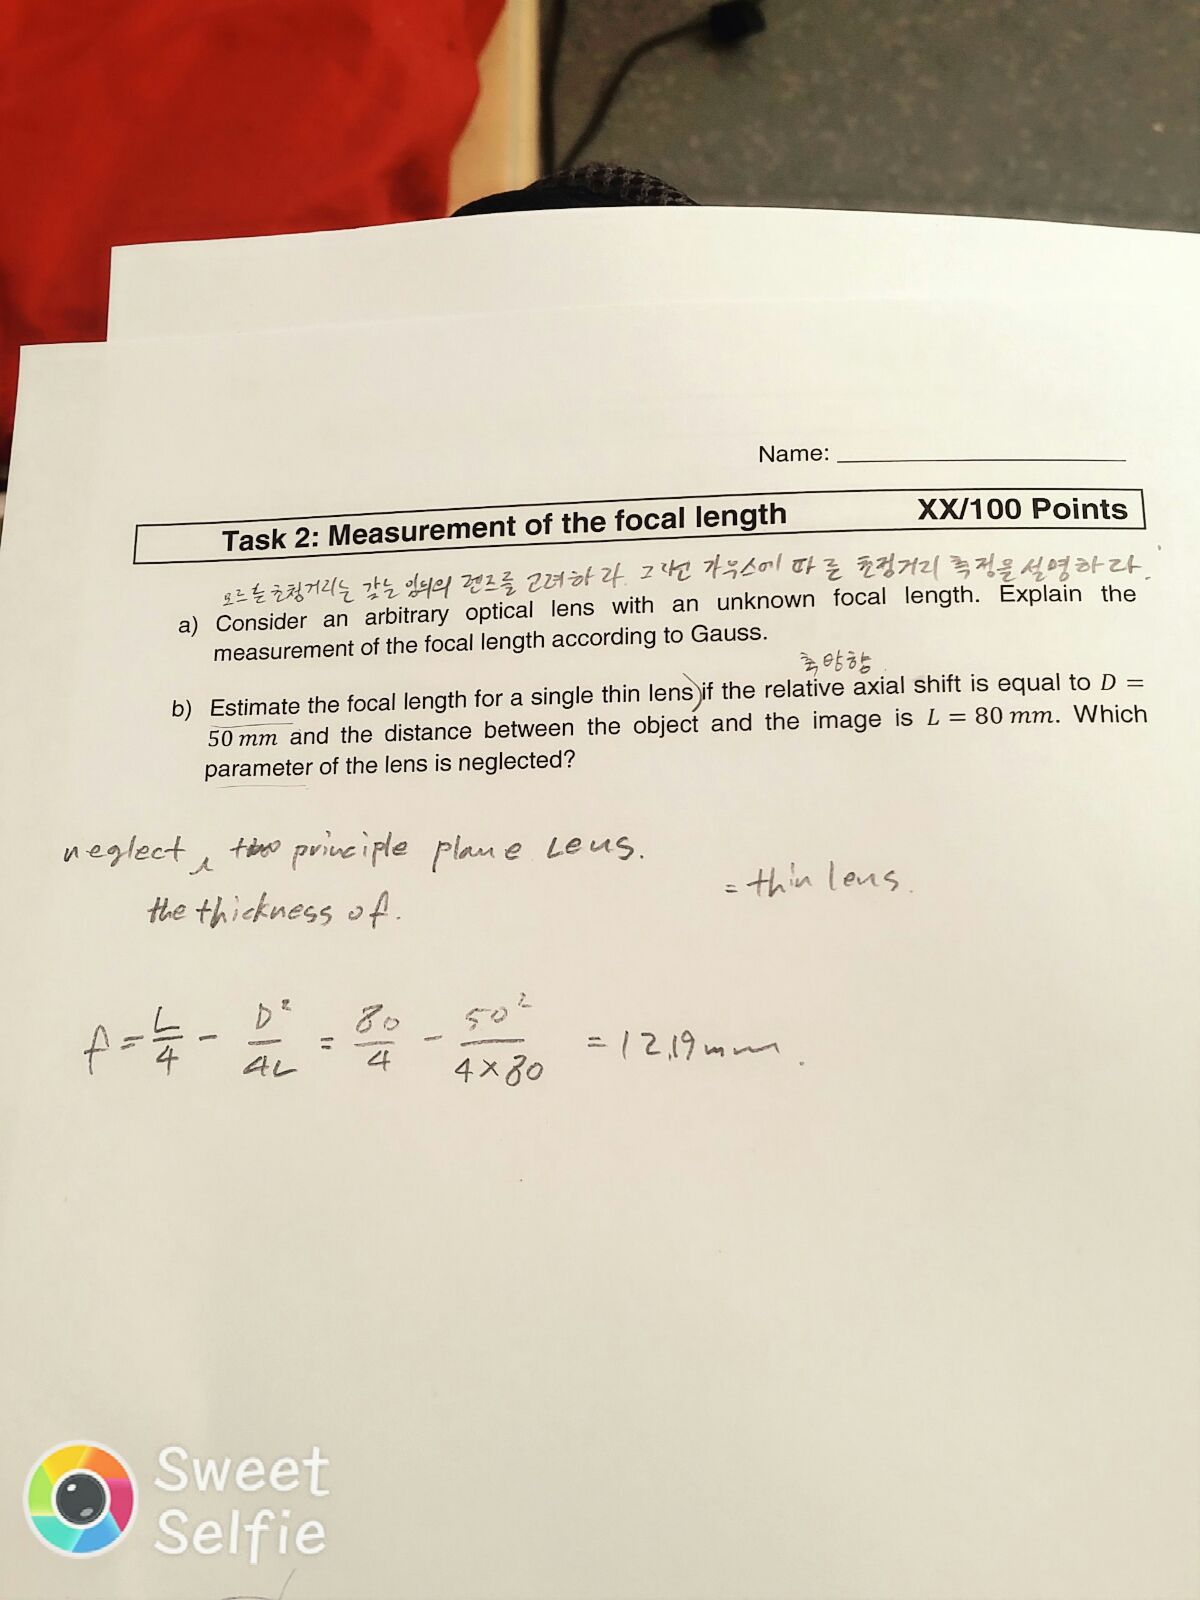 Name:
Task 2: Measurement of the focal length XX/100 Points
모르는 초점거리는 갖는 임의의 렌즈를 고려하라. 그래선 가우스에 따른 초점거리 측정을 설명하라.
a) Consider an arbitrary optical lens with an unknown focal length. Explain the
measurement of the focal length according to Gauss.
축방향
b) Estimate the focal length for a single thin lens) if the relative axial shift is equal to D =
50 mm and the distance between the object and the image is L = 80 mm. Which
parameter of the lens is neglected?
neglect two principle plane Lens.
= thin lens.
the thickness of.
f = L/4 - D²/4L = 80/4 - 50²/4×80 = 12.19mm.
Sweet
Selfie